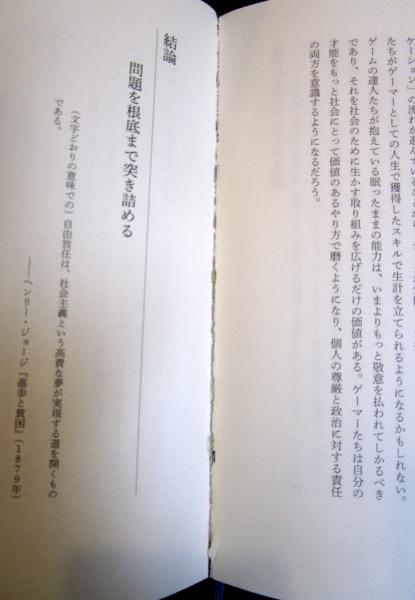 ゲーマーとしての人生で獲得したスキルで生計を立てられるようになるかもしれない。
ゲームの達人たちが抱えている眠ったままの能力は、いまよりもっと敬意を払われてしかるべき
であり、それを社会のために生かす取り組みを広げるだけの価値がある。ゲーマーたちは自分の
才能をもっと社会にとって価値のあるやり方で磨くようになり、個人の尊厳と政治に対する責任
の両方を意識するようになるだろう。
結論
問題を根底まで突き詰める
（文字どおりの意味での）自由放任は、社会主義という高貴な夢が実現する道を開くもの
である。
――ヘンリー・ジョージ『進歩と貧困』（1879年）